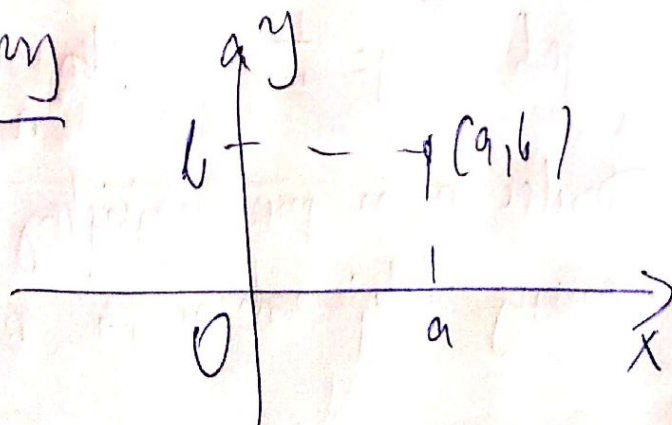 y
b (a,b)
O a x